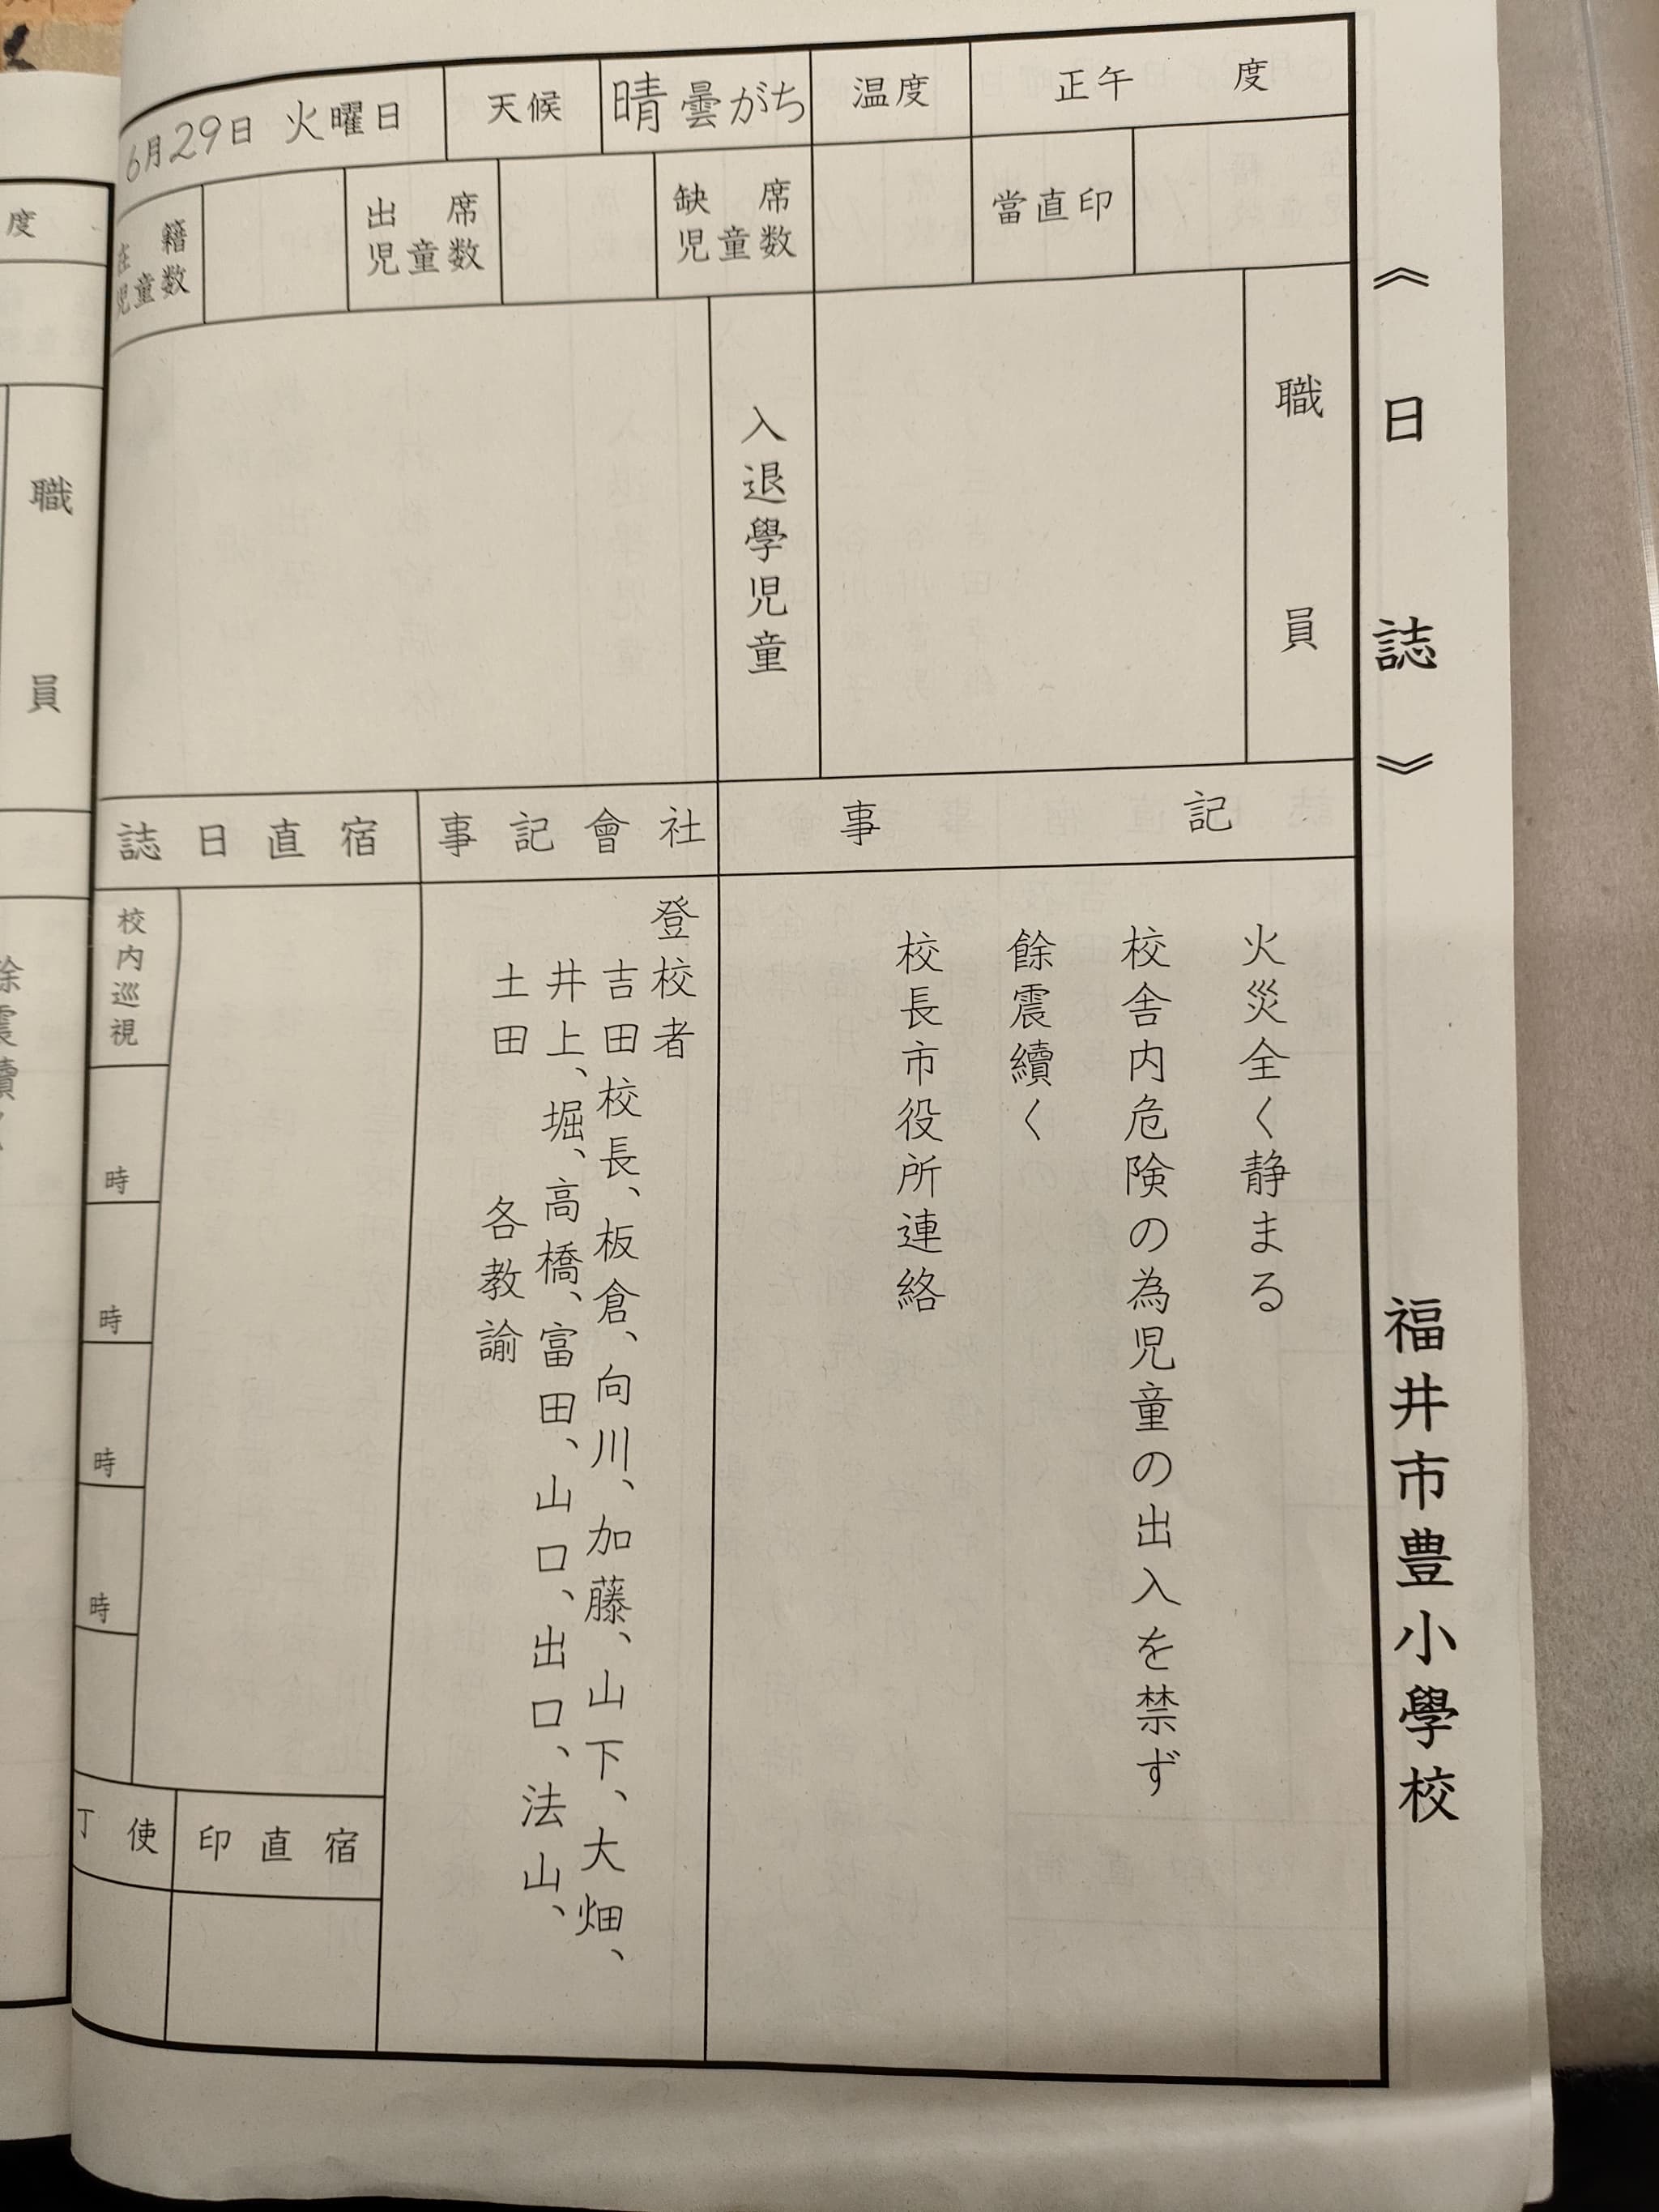 《日誌》 福井市豊小學校
6月29日 火曜日 天候 晴曇がち 温度 正午 度
在籍児童数 出席児童数 缺席児童数 當直印
職員
入退學児童
記事
火災全く静まる
校舎内危険の為児童の出入を禁ず
餘震續く
校長市役所連絡
社會記事
登校者
吉田校長、板倉、向川、加藤、山下、大畑、
井上、堀、高橋、富田、山口、出口、法山、
土田 各教諭
宿直日誌
校内巡視
時
時
時
時
宿直印
使丁
度
職員
餘震續く